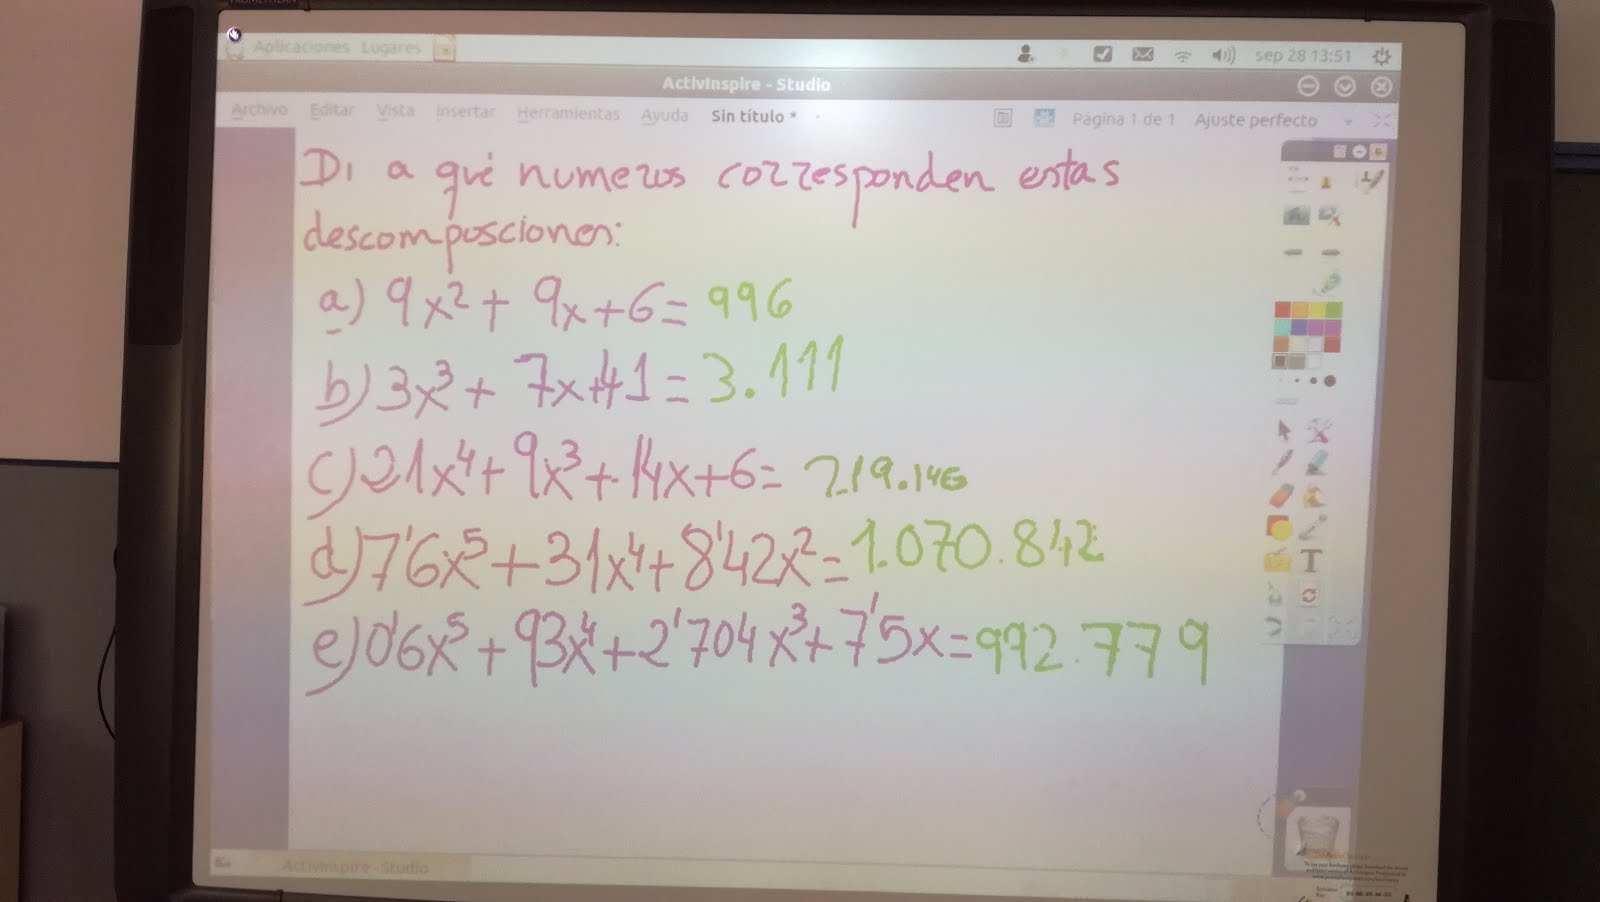 Aplicaciones Lugares
sep 28 13:51
ActivInspire - Studio
Archivo Editar Vista Insertar Herramientas Ayuda Sin título * Página 1 de 1 Ajuste perfecto
Di a qué numeros corresponden estas
descomposciones:
a) 9x² + 9x + 6 = 996
b) 3x³ + 7x + 41 = 3.111
c) 21x⁴ + 9x³ + 14x + 6 = 219.146
d) 7'6x⁵ + 31x⁴ + 8'42x² = 1.070.842
e) 0'6x⁵ + 93x⁴ + 2'704x³ + 7'5x = 992.779
T
ActivInspire - Studio